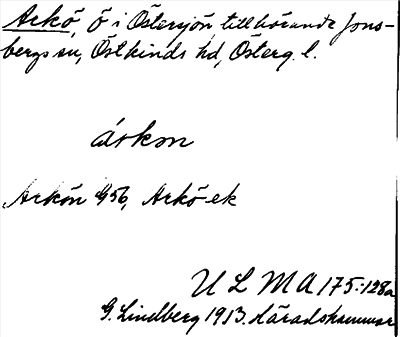 Arkö, ö i Östersjön, tillhörande Jons-
bergs sn, Östkinds hd, Österg. l.
árkon
Arkön G56, Arkö-ek
U L M A 175:128a
G. Lindberg 1913. Häradskammare